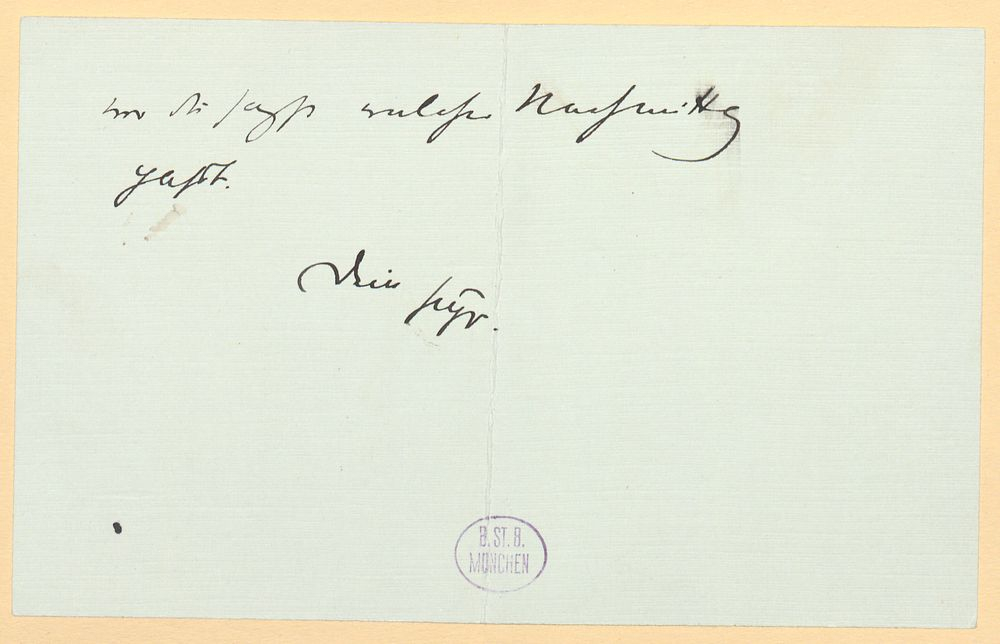 wo du sagst welcher Nachmittag
paßt.
Dein
B. ST. B.
MÜNCHEN